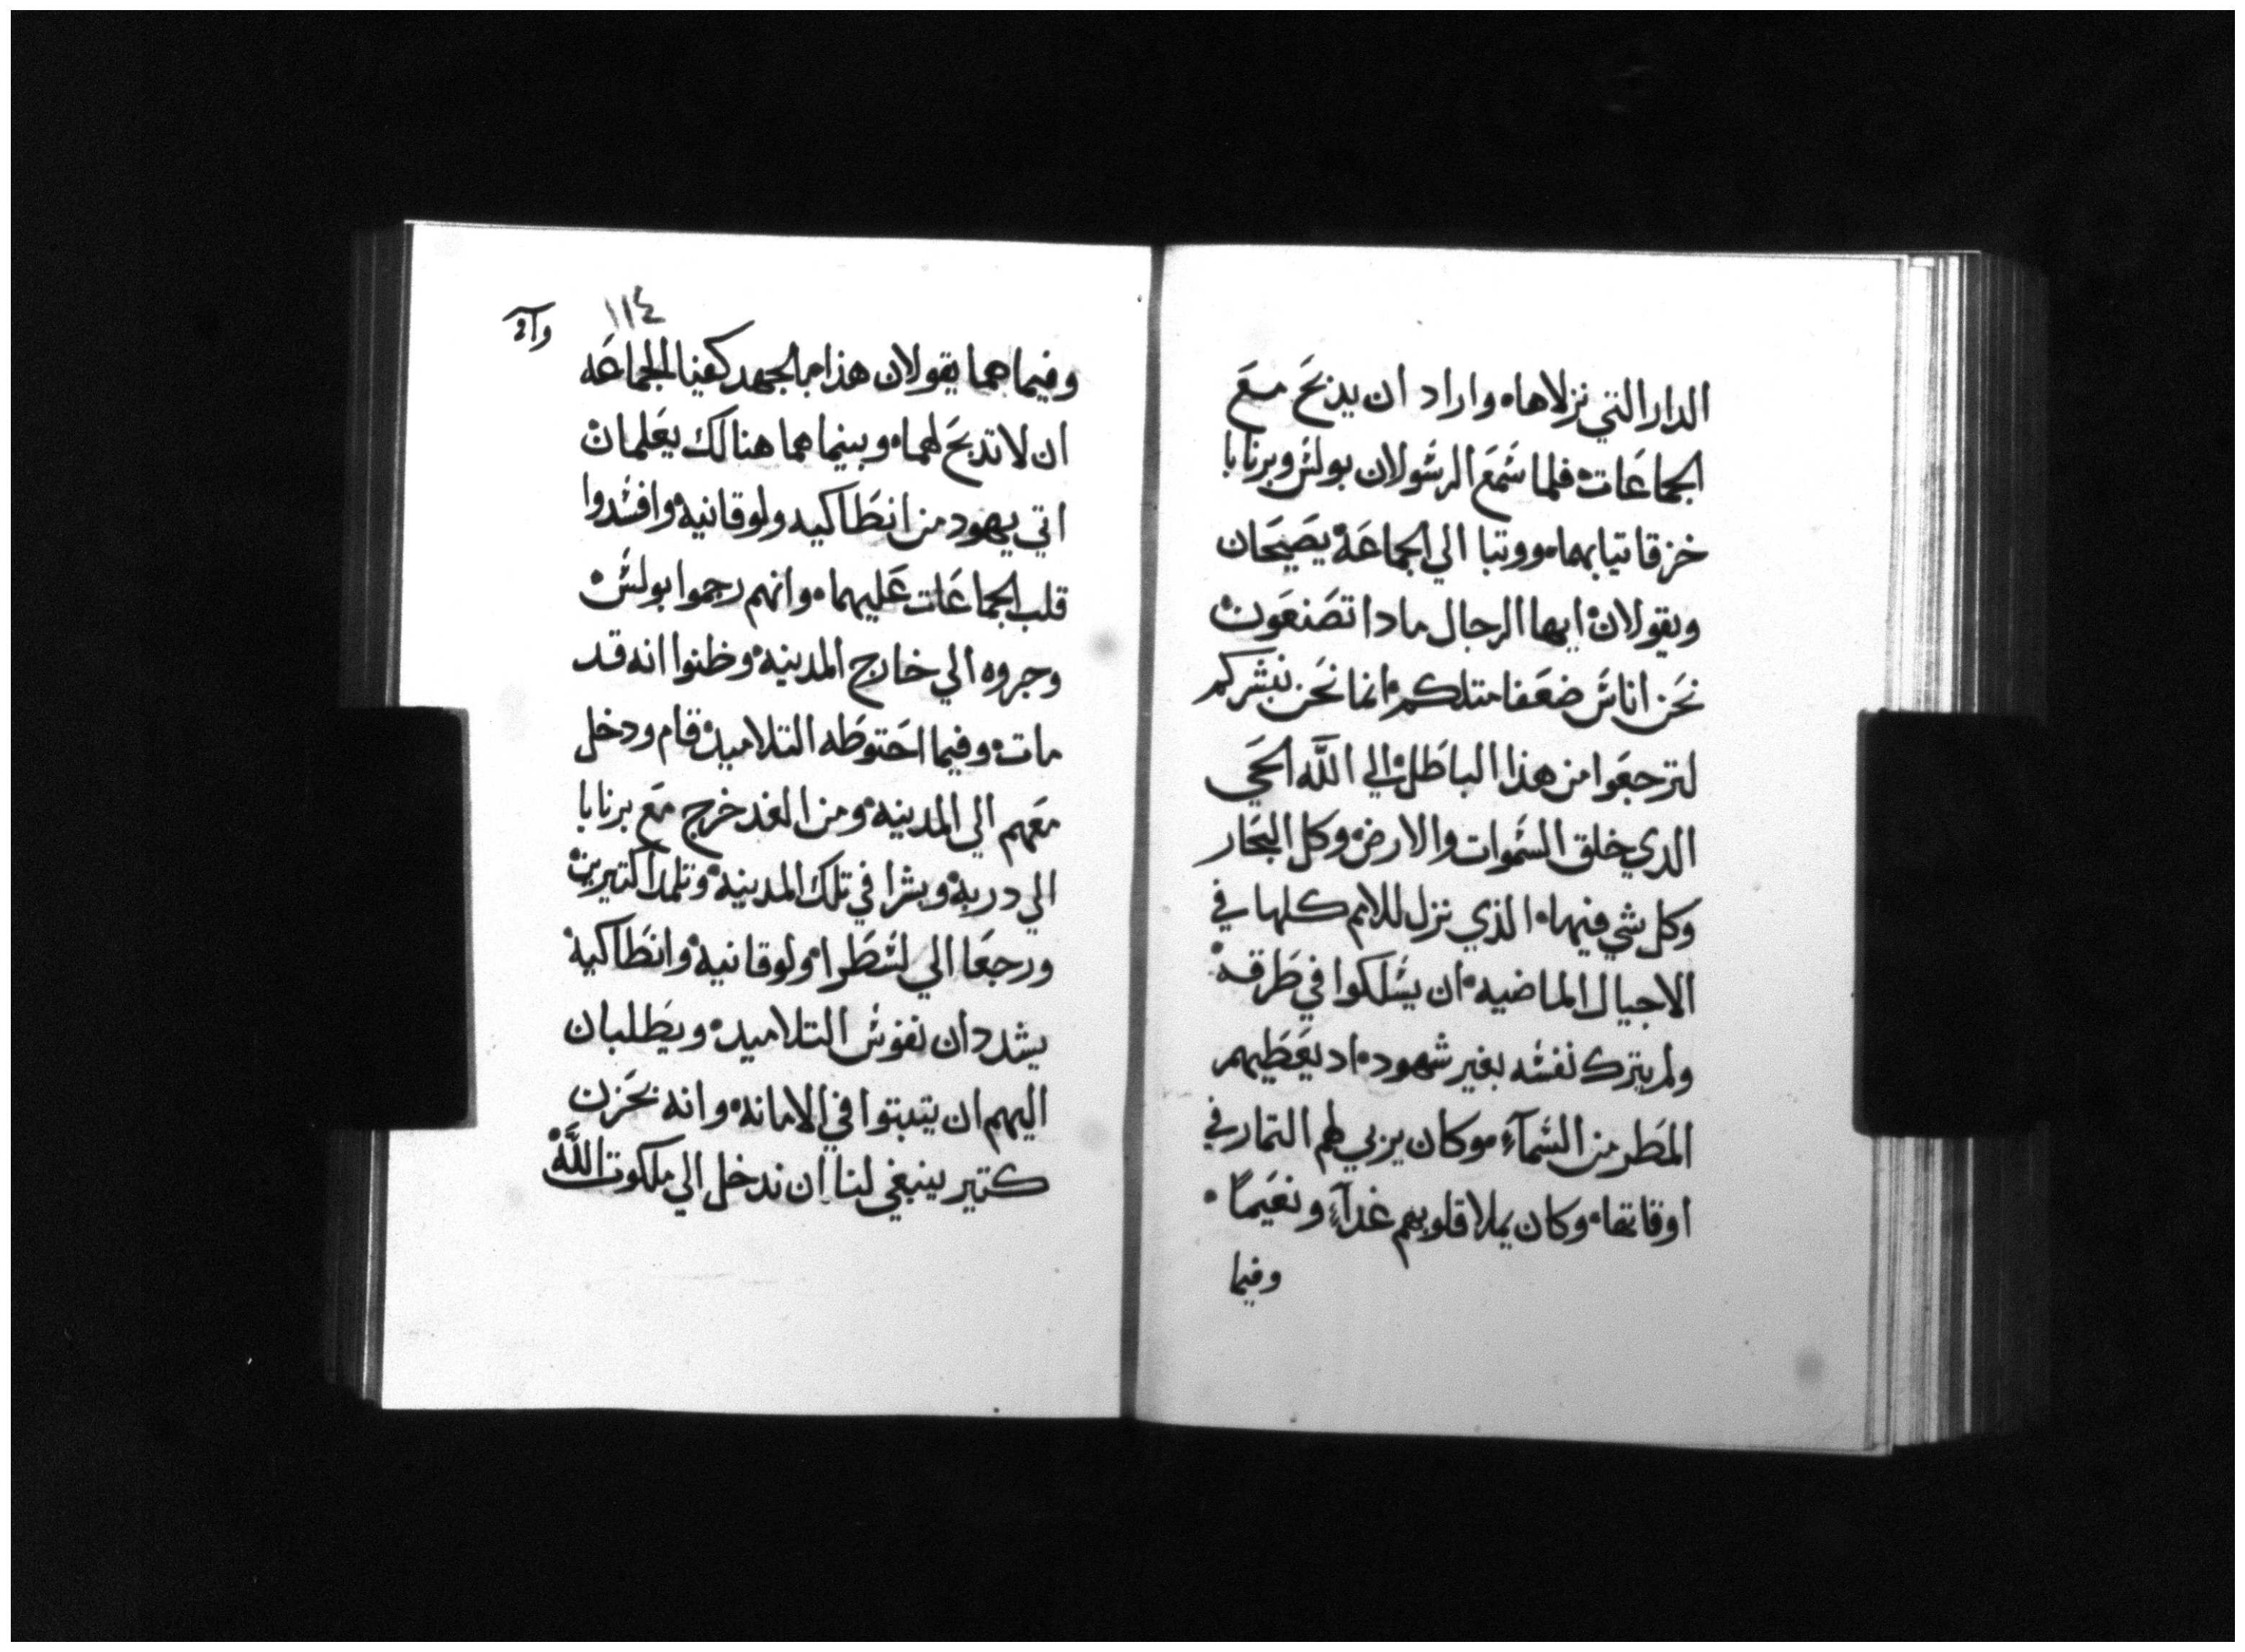 الدار التي نزلاها، واراد ان يدبَح معَ
الجماعَات، فلما سَمَعَ الرسَولان بولسَ وبرنابا
خزقا تيابهما، ووتبا الي الجماعَة يصَيحَان
ويقولان، ايها الرجال مادا تصَنعَون،
نحَن اناسَ ضعَفا متلكم، انما نحَن نبشركم
لترجعَوا من هذا الباطَل، الي اللَّه الحَي
الدي خلق السَموات والارض، وكل البحَار
وكل شي فيهما، الذي نزل للامم كلها في
الاجيال الماضيه، ان يسَلكوا في طَرقه،
ولم يترك نفسَه بغير شهود، اد يعَطَيهم
المطَر من السَمآءِ، وكان يربي لهم التمار في
اوقاتها، وكان يملا قلوبهم غدآءِ ونعَيماً،
وفيما
١١٤
وفيما هما يقولان هذا مبالجهد كفينا الجماعَه
ان لا تدبحَ لهما، وبينما هما هنالك يعَلمان،
اتي يهود من انطَاكيه ولوقانيه، وافسَدوا
قلب الجماعَات عَليهما، وانهم رجموا بولسَ،
وجروه الي خارج المدينه، وظنوا انه قد
مات، وفيما احَتوطَه التلاميد، قام ودخل
معَهم الي المدينه، ومن الغد خرج معَ برنابا
الي دربه، وبشرا في تلك المدينه، وتلمدا كتيرين،
ورجعَا الي لسَطَرا، ولوقانيه، وانطَاكيه،
يشددان نفوسَ التلاميد، ويطَلبان
اليهم ان يتبتوا في الامانه، وانه بحَزن
كتير ينبغي لنا ان ندخل الي ملكوت اللَّه،